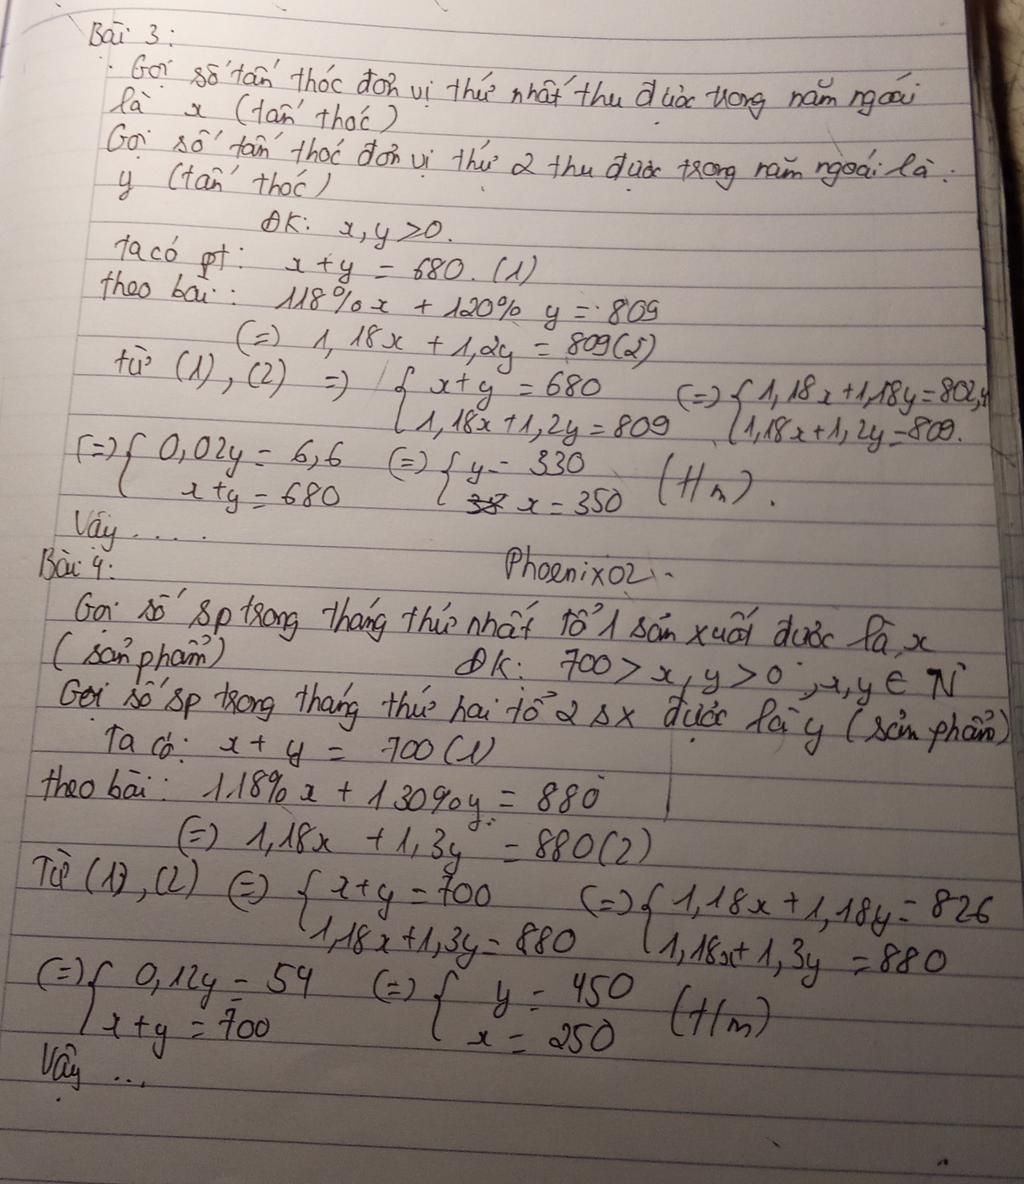 Bài 3:
Gọi số tấn thóc đơn vị thứ nhất thu được trong năm ngoái
là x (tấn thóc)
Gọi số tấn thóc đơn vị thứ 2 thu được trong năm ngoái là:
y (tấn thóc)
ĐK: x, y > 0.
Ta có pt: x + y = 680. (1)
theo bài: 118% x + 120% y = 809
(=) 1,18x + 1,2y = 809 (2)
từ (1), (2) => { x + y = 680 (=) { 1,18x + 1,18y = 802,4
1,18x + 1,2y = 809 1,18x + 1,2y = 809.
(=) { 0,02y = 6,6 (=) { y = 330 (t/m).
x + y = 680 x = 350
Vậy ....
Bài 4: Phoenix02
Gọi số sp trong tháng thứ nhất tổ 1 sản xuất được là x
(sản phẩm) ĐK: 700 > x, y > 0; x, y ∈ N
Gọi số sp trong tháng thứ hai tổ 2 sx được là y (sản phẩm)
Ta có: x + y = 700 (1)
theo bài: 118% x + 130% y = 880
(=) 1,18x + 1,3y = 880 (2)
Từ (1), (2) (=) { x + y = 700 (=) { 1,18x + 1,18y = 826
1,18x + 1,3y = 880 1,18x + 1,3y = 880
(=) { 0,12y = 54 (=) { y = 450 (t/m)
x + y = 700 x = 250
Vậy ...